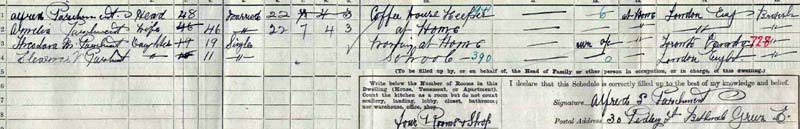 1 Alfred Parchment Head 48 Married 22 7 4 3 Coffee House Keeper 6 at Home London Eng British
2 Amelia Parchment Wife 46 46 " 22 7 4 3 at Home "
3 Theodora M. Parchment Daughter 19 19 Single Working at Home Toronto Canada 728 "
4 Parchment " 11 School 390 London Engl "
5 (To be filled up by, or on behalf of, the Head of Family or other person in occupation, or in charge, of this dwelling.)
6 Write below the Number of Rooms in this Dwelling (House, Tenement, or Apartment). Count the kitchen as a room but do not count scullery, landing, lobby, closet, bathroom; nor warehouse, office, shop.
I declare that this Schedule is correctly filled up to the best of my knowledge and belief.
7 Signature Alfred S Parchment
8 Four 4 Rooms & Shop
Postal Address 30 St Bethnal Green E.